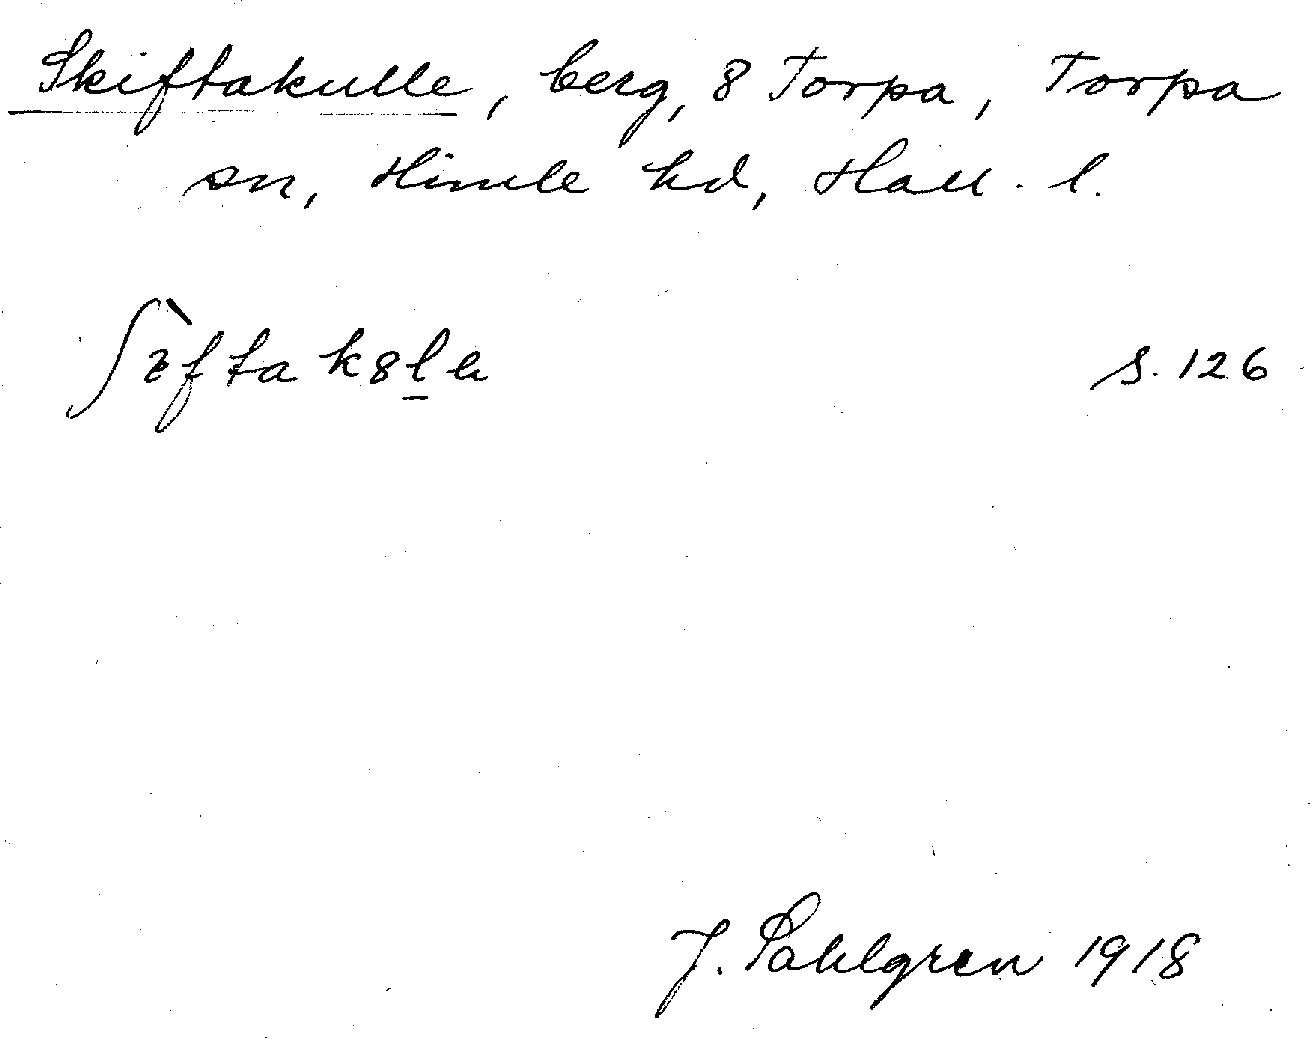 Skiftakulle, berg, 8 Torpa, Torpa
sn, Himle hd, Hall. l.
s. 126
J. Sahlgren 1918